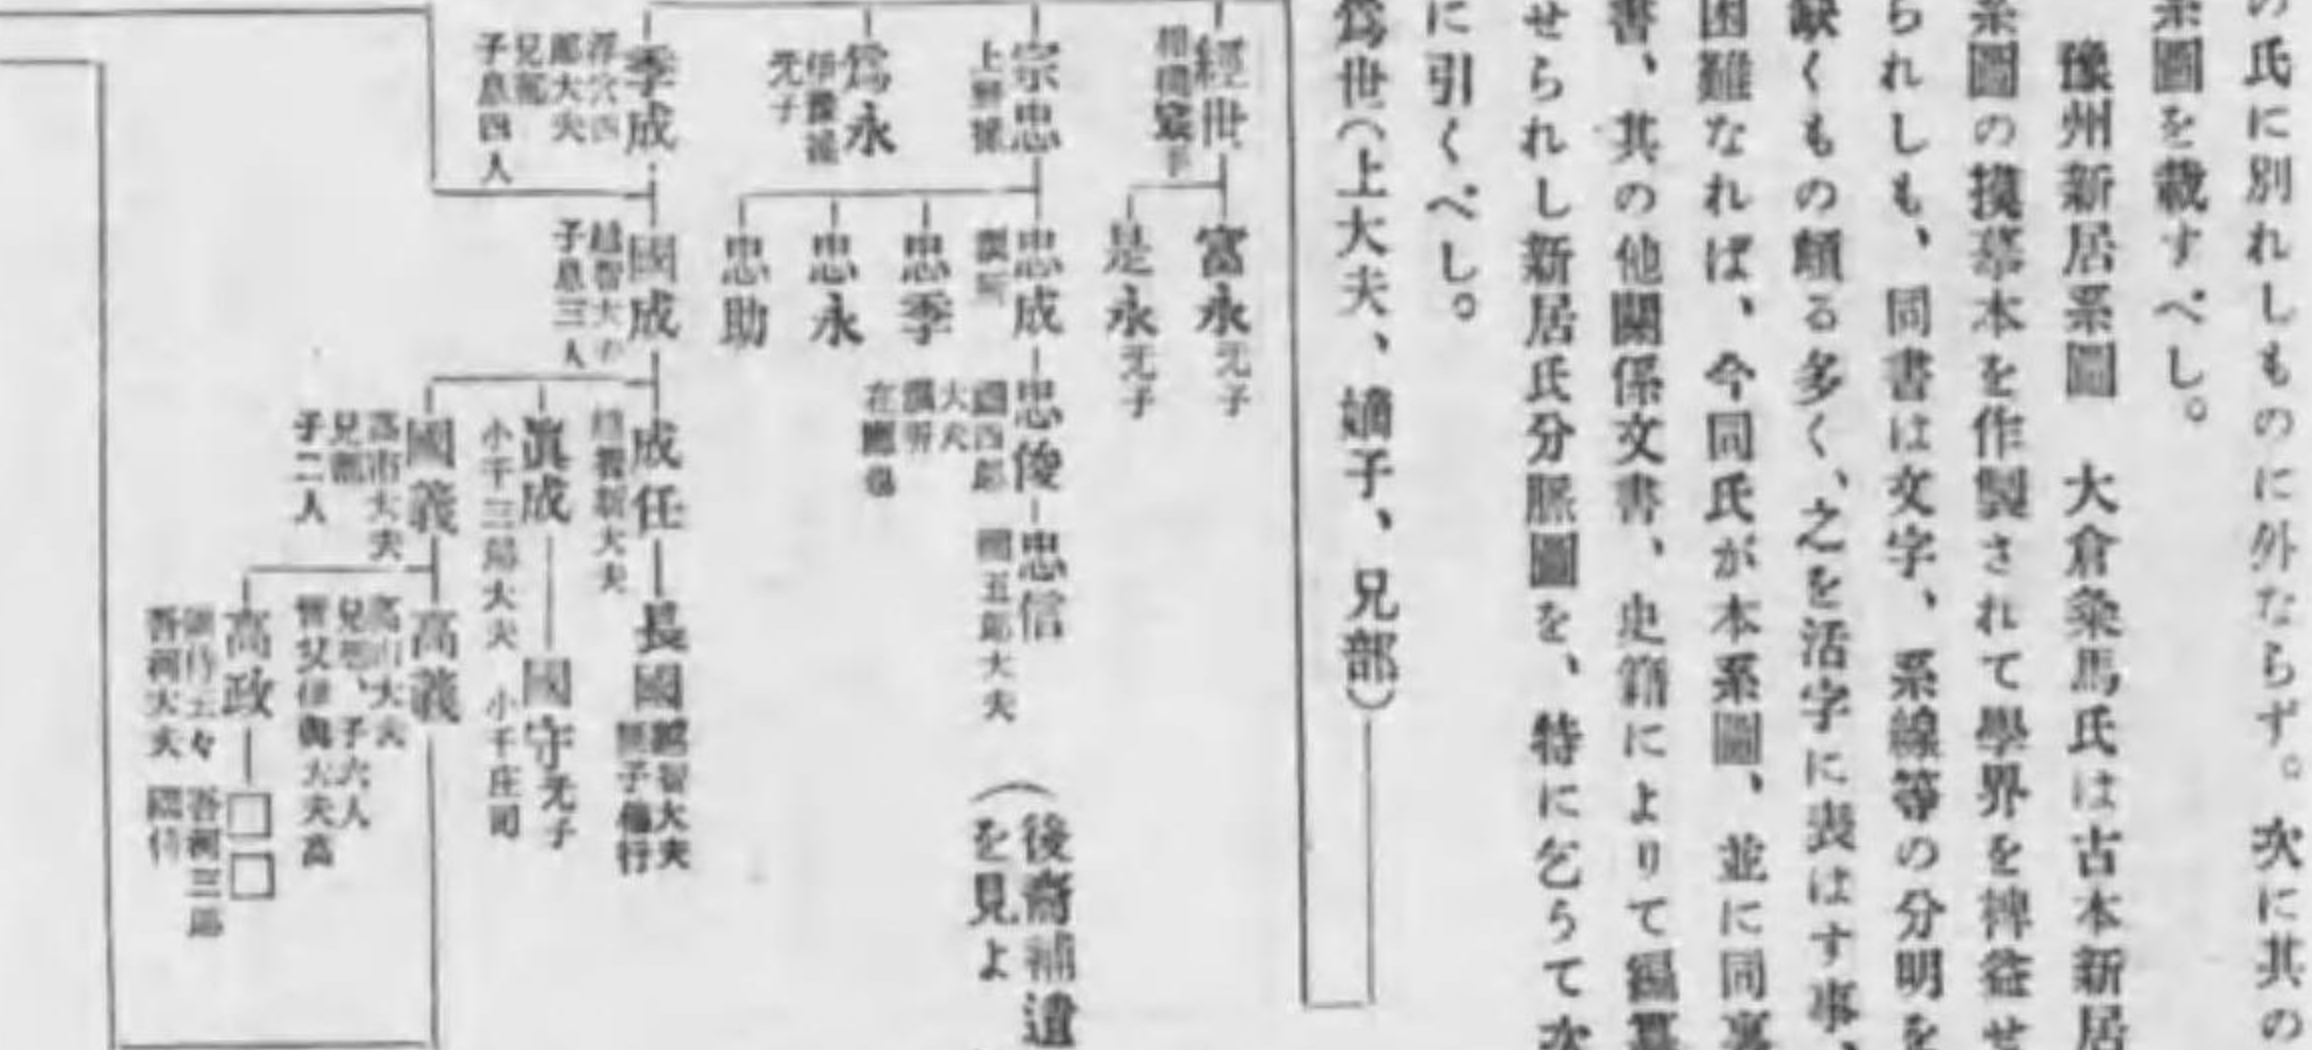 の氏に別れしものに外ならず。次に其の
系圖を載すべし。
豫州新居系圖　大倉粂馬氏は古本新居
系圖の摸摹本を作製されて學界を裨益せ
られしも、同書は文字、系線等の分明を
缺くもの頗る多く、之を活字に表はす事、
困難なれば、今同氏が本系圖、並に同裏
書、其の他關係文書、史籍によりて編纂
せられし新居氏分脈圖を、特に乞うて次
に引くべし。
爲世（上大夫、嫡子、兄部）
經世
富永 无子
是永 无子
宗忠
忠成
忠俊
忠信
國五郎大夫
（後裔補遺
を見よ
忠季
忠永
忠助
爲永
无子
季成
浮穴四
郎大夫
兄部
子息四人
國成
越智大夫
子息三人
成任
越智新大夫
長國
越智大夫
眞成
小千三郎大夫
國守 无子
小千庄司
國義
高市大夫
兄部
子二人
高義
高市大夫
高政
吾河大夫
□□
吾河三郎
國信